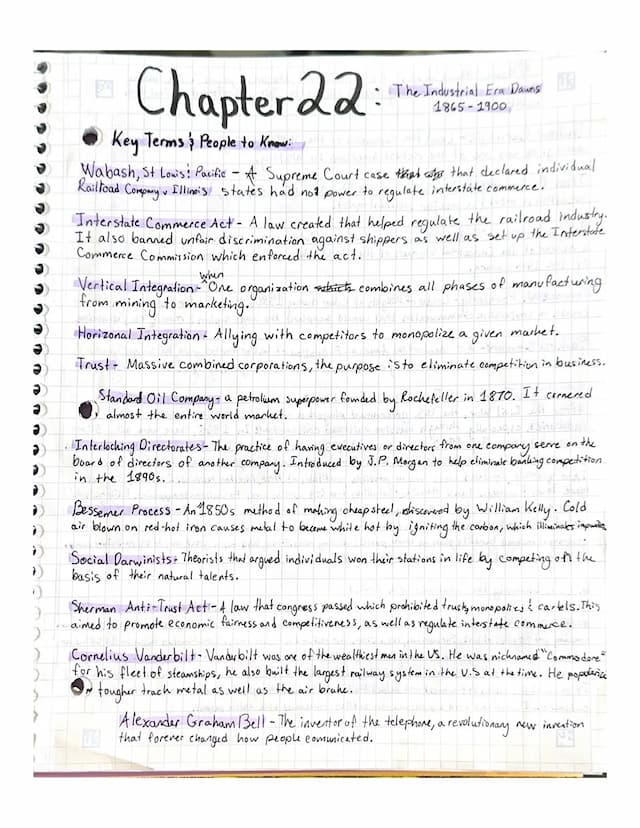 Chapter 22: The Industrial Era Dawns
1865-1900
Key Terms & People to Know:
Wabash, St Louis & Pacific - A Supreme Court case that declared individual
Railroad Company v Illinois states had no power to regulate interstate commerce.
Interstate Commerce Act - A law created that helped regulate the railroad industry.
It also banned unfair discrimination against shippers as well as set up the Interstate
Commerce Commission which enforced the act.
Vertical Integration - when One organization combines all phases of manufacturing
from mining to marketing.
Horizonal Integration - Allying with competitors to monopolize a given market.
Trust - Massive combined corporations, the purpose is to eliminate competition in business.
Standard Oil Company - a petrolium superpower founded by Rochefeller in 1870. It cornered
almost the entire world market.
Interlocking Directorates - The practice of having executives or directors from one company serve on the
board of directors of another company. Introduced by J.P. Morgen to help eliminate banking competition
in the 1890s.
Bessemer Process - An 1850s method of making cheap steel, discovered by William Kelly. Cold
air blown on red-hot iron causes metal to become white hot by igniting the carbon, which
Social Darwinists - Theorists that argued individuals won their stations in life by competing on the
basis of their natural talents.
Sherman Anti-Trust Act - A law that congress passed which prohibited trusts, monopolies & cartels. This
aimed to promote economic fairness and competitiveness, as well as regulate interstate commerce.
Cornelius Vanderbilt - Vanderbilt was one of the wealthiest men in the US. He was nicknamed "Commodore"
for his fleet of steamships, he also built the largest railway system in the U.S at the time. He
tougher track metal as well as the air brake.
Alexander Graham Bell - The inventor of the telephone, a revolutionary new invention
that forever changed how people comunicated.